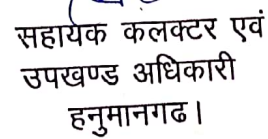 सहायक कलक्टर एवं
उपखण्ड अधिकारी
हनुमानगढ।